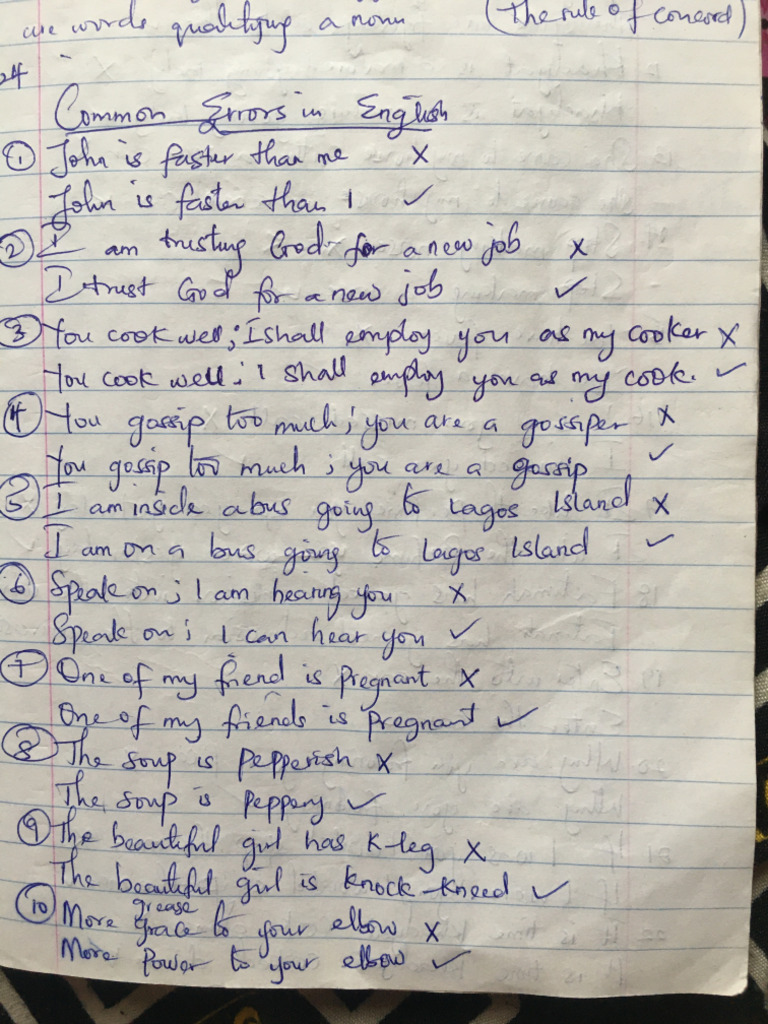 are words qualifying a noun (The rule of concord)
24
Common Errors in English
① John is faster than me X
John is faster than I ✓
② I am trusting God for a new job X
I trust God for a new job ✓
③ You cook well; I shall employ you as my cooker X
You cook well; I shall employ you as my cook. ✓
④ You gossip too much; you are a gossiper X
You gossip too much; you are a gossip ✓
⑤ I am inside a bus going to Lagos Island X
I am on a bus going to Lagos Island ✓
⑥ Speak on; I am hearing you X
Speak on; I can hear you ✓
⑦ One of my friend is pregnant X
One of my friends is pregnant ✓
⑧ The soup is pepperish X
The soup is peppery ✓
⑨ The beautiful girl has K-leg X
The beautiful girl is knock-kneed ✓
grease
⑩ More grace to your elbow X
More power to your elbow ✓